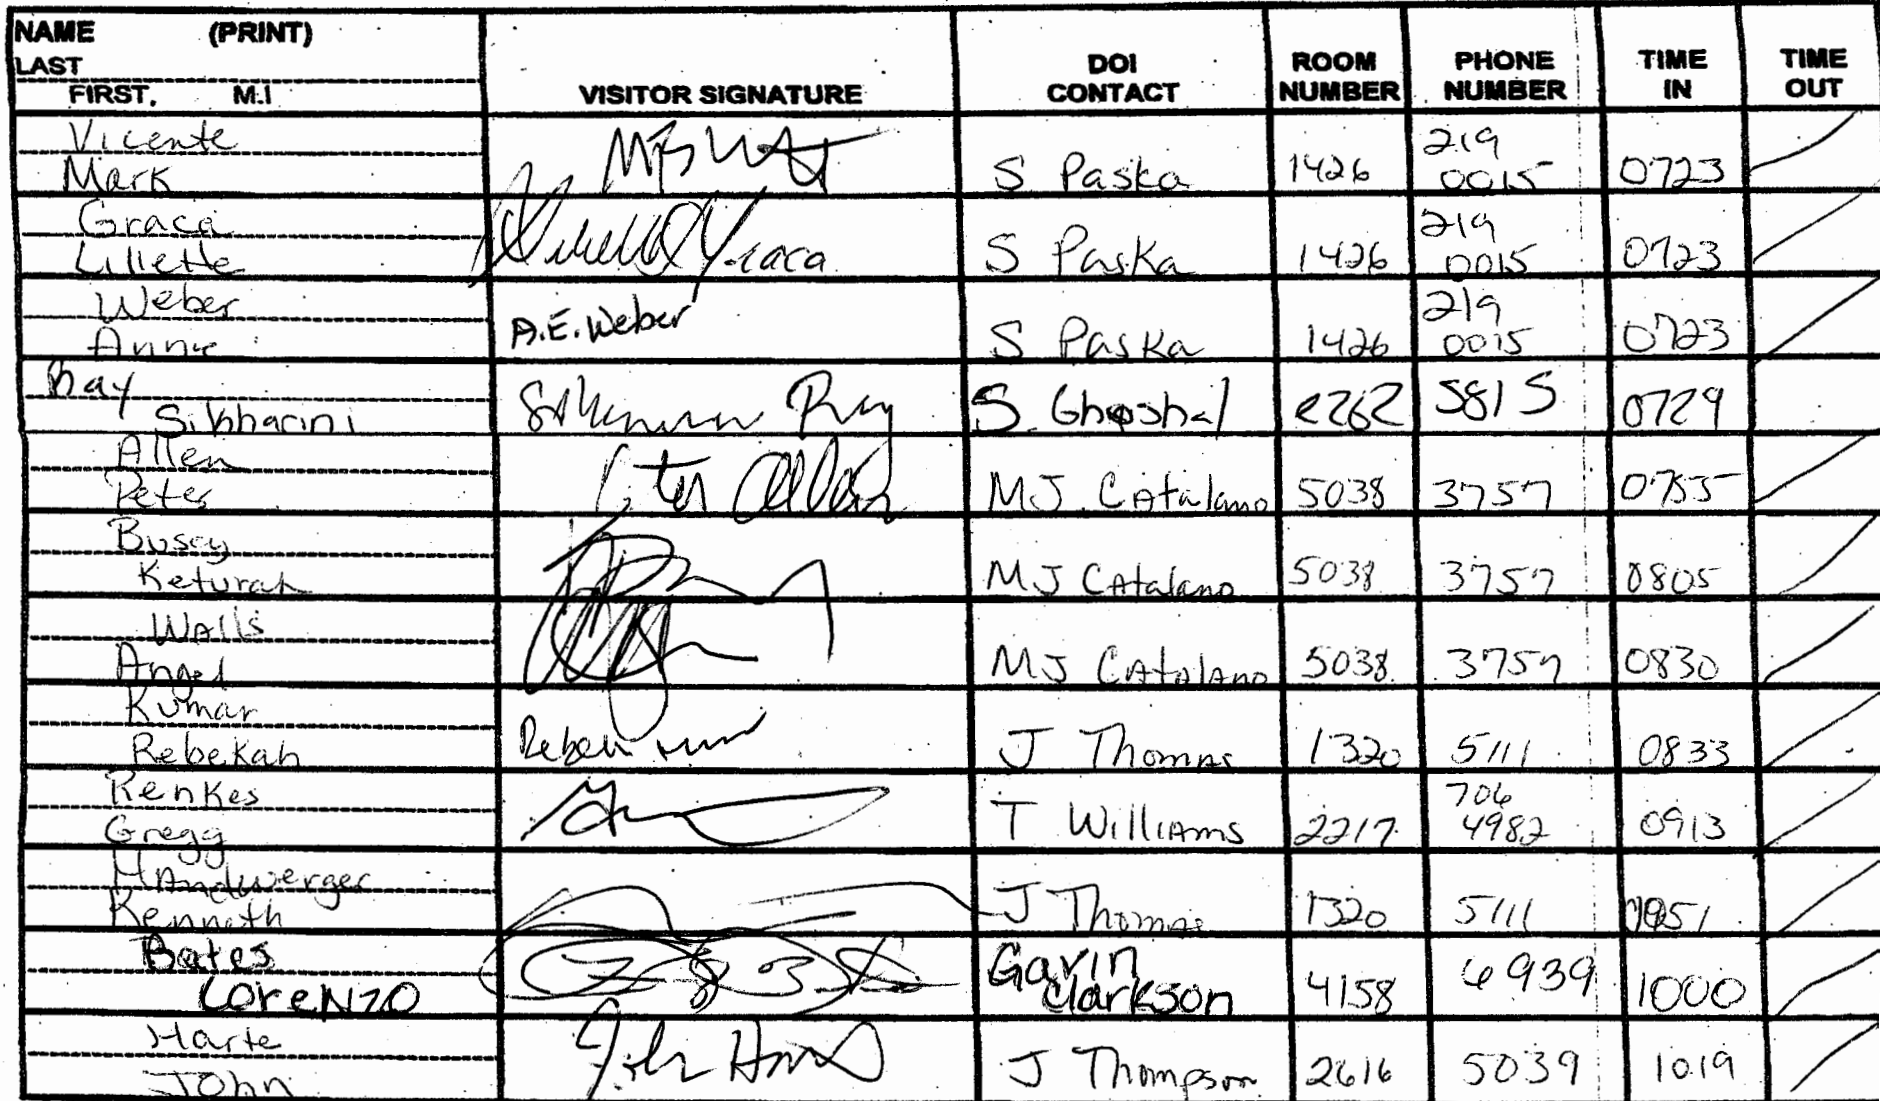 NAME (PRINT)
LAST
FIRST, M.I
VISITOR SIGNATURE
DOI CONTACT
ROOM NUMBER
PHONE NUMBER
TIME IN
TIME OUT
Vicente
Mark
S Paska 1426 219 0015 0723
Graca
Lillette
Graca
S Paska 1426 219 0015 0723
Weber
Anne
A.E. Weber
S Paska 1426 219 0015 0723
Ray
Sikharini
Ray
S. Ghoshal 2262 5815 0729
Allen
Peter
Peter Allen
MJ CAtalano 5038 3757 0755
Buscy
Keturah
MJ CAtalano 5038 3757 0805
WAlls
Angel
MJ CAtAlAno 5038 3757 0830
Kumar
Rebekah
J Thomas 1320 5111 0833
Renkes
Gregg
T WilliAms 2217 706 4982 0913
HAndwerger
Kenneth
J Thomas 1320 5111
Bates
LoreNzo
Gavin Clarkson 4158 6939 1000
Harte
John
John
J Thompson 2616 5039 1019